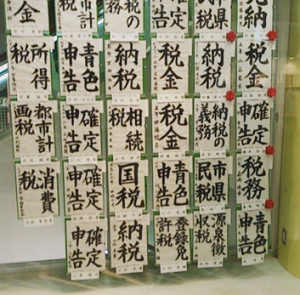 税金
市計
納税
税の
市県民税
納
所得税
青色申告
納税
確定申告
納税
税金
都市計画税
確定申告
相続税
税金
納税の義務
確定申告
消費税
確定申告
国税
青色申告
市県民税
税務
確定申告
納税
登録免許税
源泉徴収税
青色申告